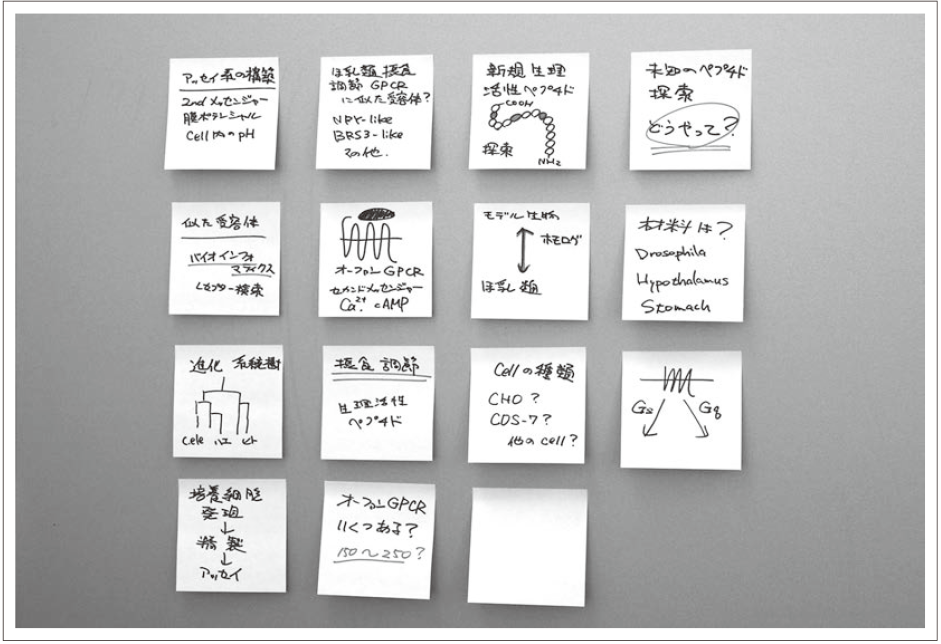 アッセイ系の構築
2nd メッセンジャー
膜ポテンシャル
Cell内のpH
ほ乳類 摂食
調節 GPCR
に似た受容体?
NPY-like
BRS3-like
その他.
新規生理
活性ペプチド
COOH
探索
NH2
未知のペプチド
探索
どうやって?
似た受容体
バイオインフォ
マティクス
レセプター検索
オーファンGPCR
セカンドメッセンジャー
Ca2+ cAMP
モデル生物
ホモログ
ほ乳類
材料は?
Drosophila
Hypothalamus
Stomach
進化 系統樹
Cele ハエ ヒト
摂食調節
生理活性
ペプチド
Cellの種類
CHO?
COS-7?
他のcell?
Gs Gq
培養細胞
発現
↓
精製
↓
アッセイ
オーファンGPCR
いくつある?
150〜250?